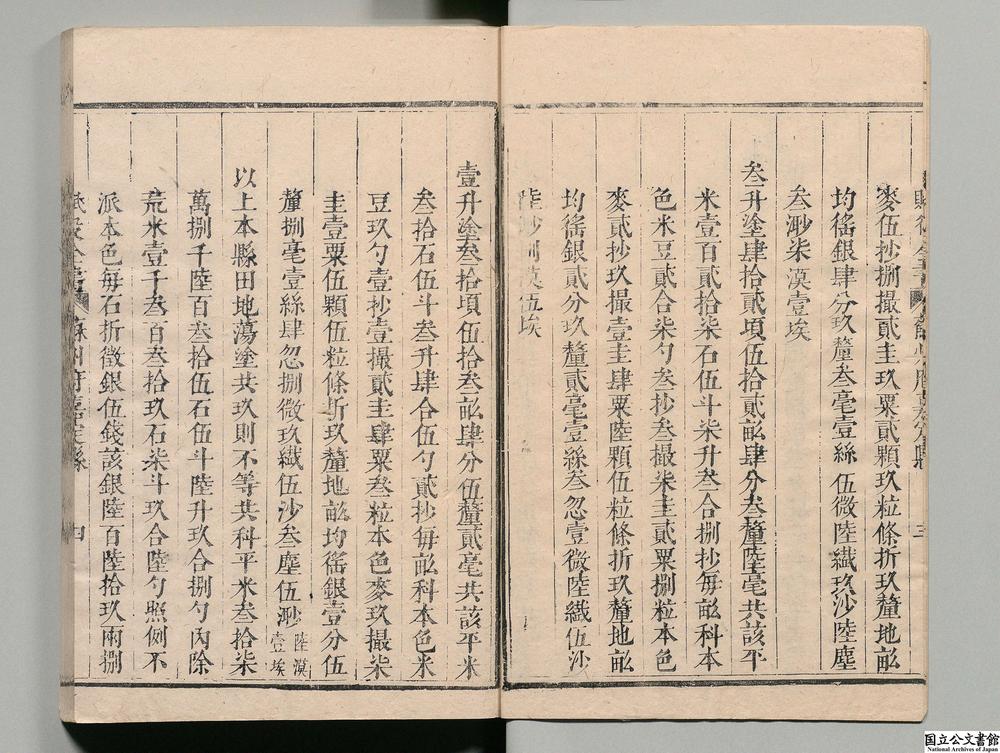 麥伍抄捌撮貳圭玖粟貳顆玖粒條折玖釐地畝
均徭銀肆分玖釐叁毫壹絲伍微陸纖玖沙陸塵
叁渺柒漠壹埃
叁升塗肆拾貳頃伍拾貳畝肆分叁釐陸毫共該平
米壹百貳拾柒石伍斗柒升叁合捌抄每畝科本
色米豆貳合柒勺叁抄叁撮柒圭貳粟捌粒本色
麥貳抄玖撮壹圭肆粟陸顆伍粒條折玖釐地畝
均徭銀貳分玖釐貳毫壹絲叁忽壹微陸纖伍沙
陸渺 漠伍埃
壹升塗叁拾頃伍拾叁畝肆分伍釐貳毫共該平米
叁拾石伍斗叁升肆合伍勺貳抄每畝科本色米
豆玖勺壹抄壹撮貳圭肆粟叁粒本色麥玖撮柒
圭壹粟伍顆伍粒條折玖釐地畝均徭銀壹分伍
釐捌毫壹絲肆忽捌微玖纖伍沙叁塵伍渺陸漠壹埃
以上本縣田地蕩塗共玖則不等共科平米叁拾柒
萬捌千陸百叁拾伍石伍斗陸升玖合捌勺內除
荒米壹千叁百叁拾玖石柒斗玖合陸勺照例不
派本色每石折徵銀伍錢該銀陸百陸拾玖兩捌
賦役全書 蘇州府嘉定縣 四
国立公文書館
National Archives of Japan